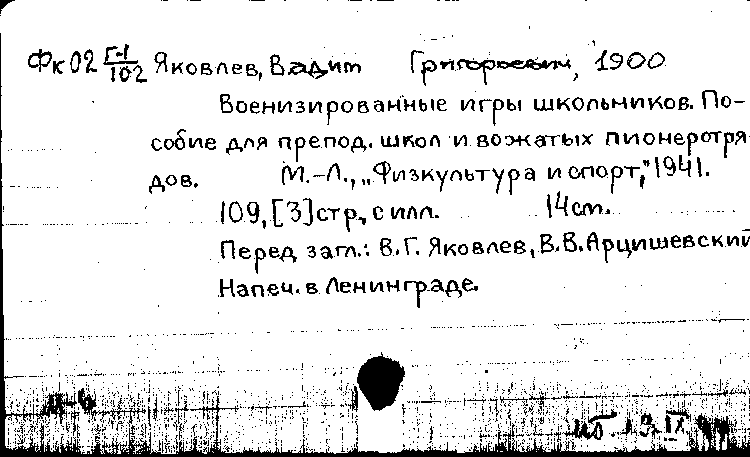 Фк02 Г-1/102 Яковлев, Вадим Григорьевич, 1900
Военизированные игры школьников. По-
собие для препод. школ и вожатых пионеротря-
дов. М.-Л., „Физкультура и спорт,” 1941.
109, [3] стр., с илл. 14 см.
Перед загл.: В.Г. Яковлев, В.В. Арцишевский
Напеч. в Ленинграде.